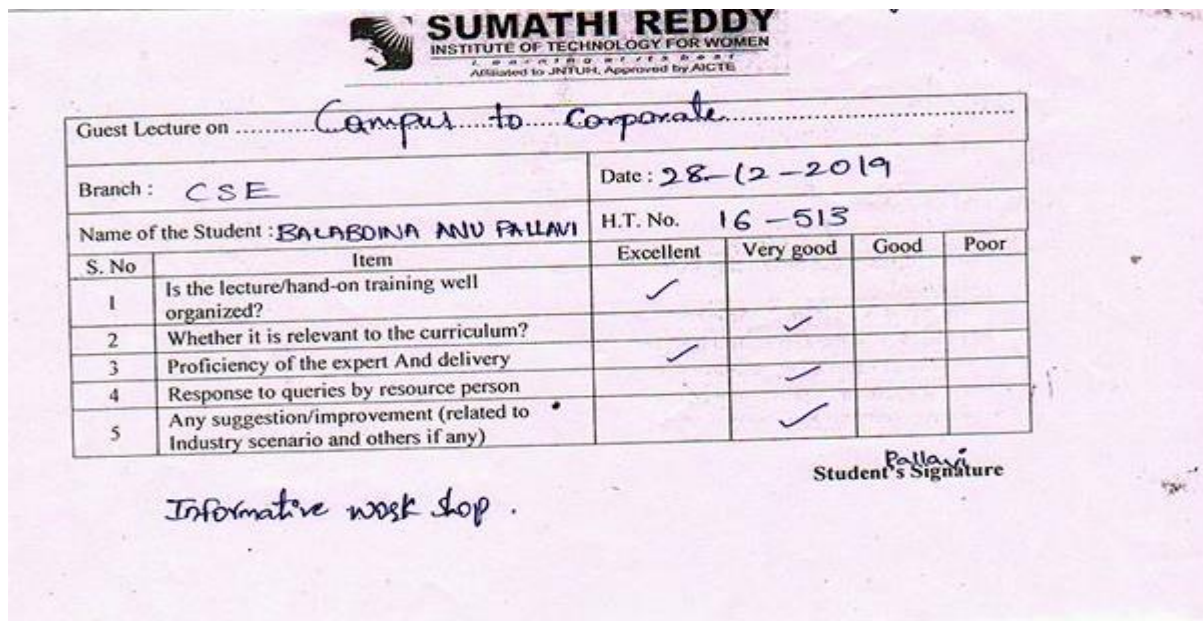 SUMATHI REDDY
INSTITUTE OF TECHNOLOGY FOR WOMEN
Learning at its best
Affiliated to JNTUH, Approved by AICTE
Guest Lecture on ........... Campus to Corporate ...........
Branch : CSE
Date : 28-12-2019
Name of the Student : BALABOINA ANU PALLAVI
H.T. No. 16-513
S. No Item Excellent Very good Good Poor
1 Is the lecture/hand-on training well organized? ✓
2 Whether it is relevant to the curriculum? ✓
3 Proficiency of the expert And delivery ✓
4 Response to queries by resource person ✓
5 Any suggestion/improvement (related to Industry scenario and others if any) ✓
Pallavi
Student's Signature
Informative work shop.